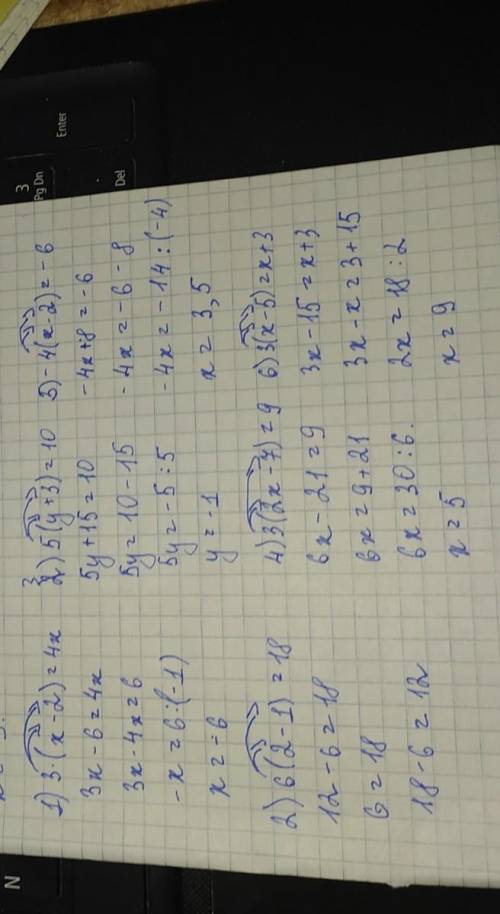 1) 3·(x-2)=4x
3x-6=4x
3x-4x=6
-x=6:(-1)
x=-6
2) 6(2-1)=18
12-6=18
6=18
18-6=12
3
2) 5(y+3)=10
5y+15=10
5y=10-15
5y=-5:5
y=-1
4) 3(2x-7)=9
6x-21=9
6x=9+21
6x=30:6.
x=5
5) -4(x-2)=-6
-4x+8=-6
-4x=-6-8
-4x=-14:(-4)
x=3,5
6) 3(x-5)=x+3
3x-15=x+3
3x-x=3+15
2x=18:2
x=9
N
3
Pg Dn
Enter
.
Del